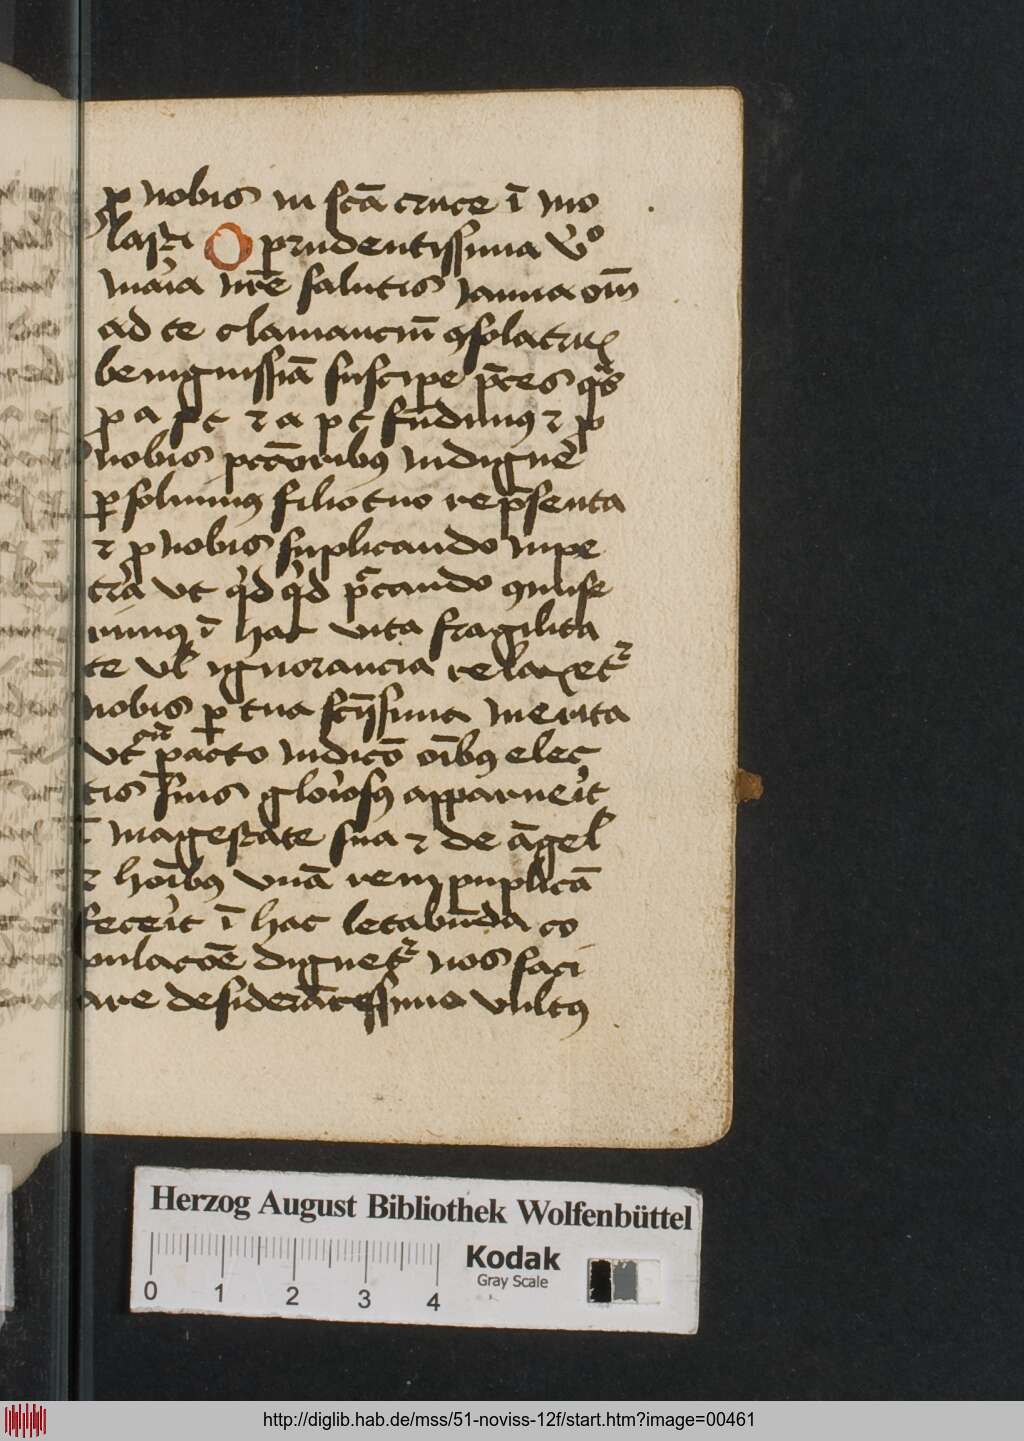 ꝓ nobis in scā cruce ī mo
lasti O prudentissima v̄o
maria nr̄e salutis ianua om̄
ad te clamanciū ꝯsolatrix
benignissiā suscipe p̄ces qͣs
ꝓ a p c ⁊ a p c fūdimꝰ ⁊ ꝓ
nobis pctōribꝰ indigne
ꝑsoluimꝰ filio tuo rep̄senta
⁊ ꝓ nobis suplicando inpe
tra vt qͥd qͥd p̄cando ꝯmise
rimꝰ ī hac vita fragilita
te vl̓ ignorancia relaxetᷣ
nobis ꝑ tua sc̄issima merita
vt cū pacto iudicō oībꝰ elec
tis suis gloriosꝰ apparuerit
ī magestate sua ⁊ de āgel̓
⁊ hoībꝰ vnā rem puplicā
fecerit ī hac letabūda co
pulacōe dignetᷣ nos saci
are desiderātissimo vultꝰ
Herzog August Bibliothek Wolfenbüttel
Kodak
Gray Scale
0 1 2 3 4
http://diglib.hab.de/mss/51-noviss-12f/start.htm?image=00461